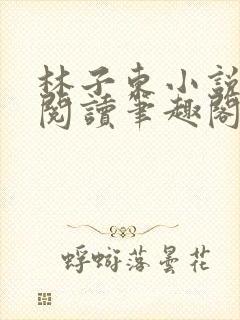 林子东小説
閱讀筆趣閣
蜉蝣落曇花